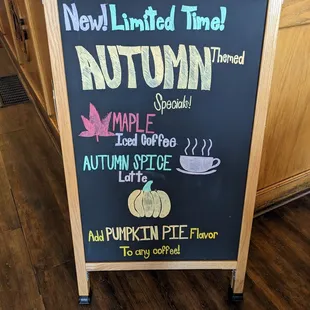 New! Limited Time!
AUTUMN Themed
Specials!
MAPLE
Iced Coffee
AUTUMN SPICE
Latte
Add PUMPKIN PIE Flavor
To any coffee!